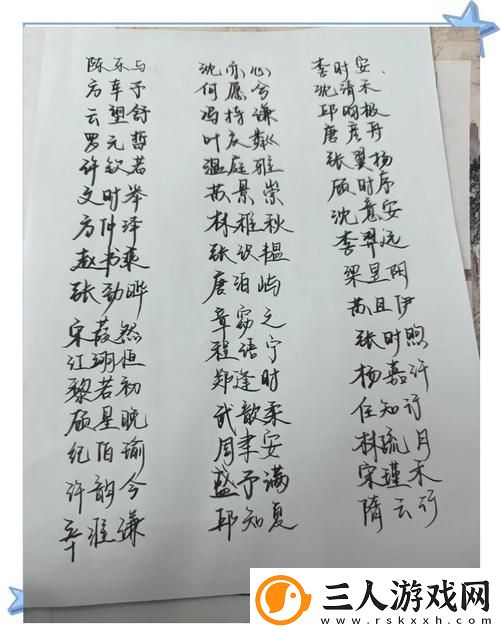 陈东与
方车予
云塑舒
罗元哲
许钦若
文时举
方仲泽
赵书乘
张劲晔
宋葭然
江翊恒
黎若初
顾星晚
纪伯瑜
许韵今
辛淮谦
沈亦心
何愿兮
冯持谦
叶庆粼
温庭雅
苏景崇
林稚秋
张汉楹
唐泊屿
章窈之
程语宁
郑逢时
武歆柔
周聿安
盛予满
邱知夏
李时安
沈清禾
邱昀极
唐彦舟
张翼杨
顾时序
沈意安
李羿远
梁昱阴
苏且伊
张时煦
杨嘉许
任知行
林疏月
宋瑾木
隋云行
三人游戏网
www.rskxxh.com